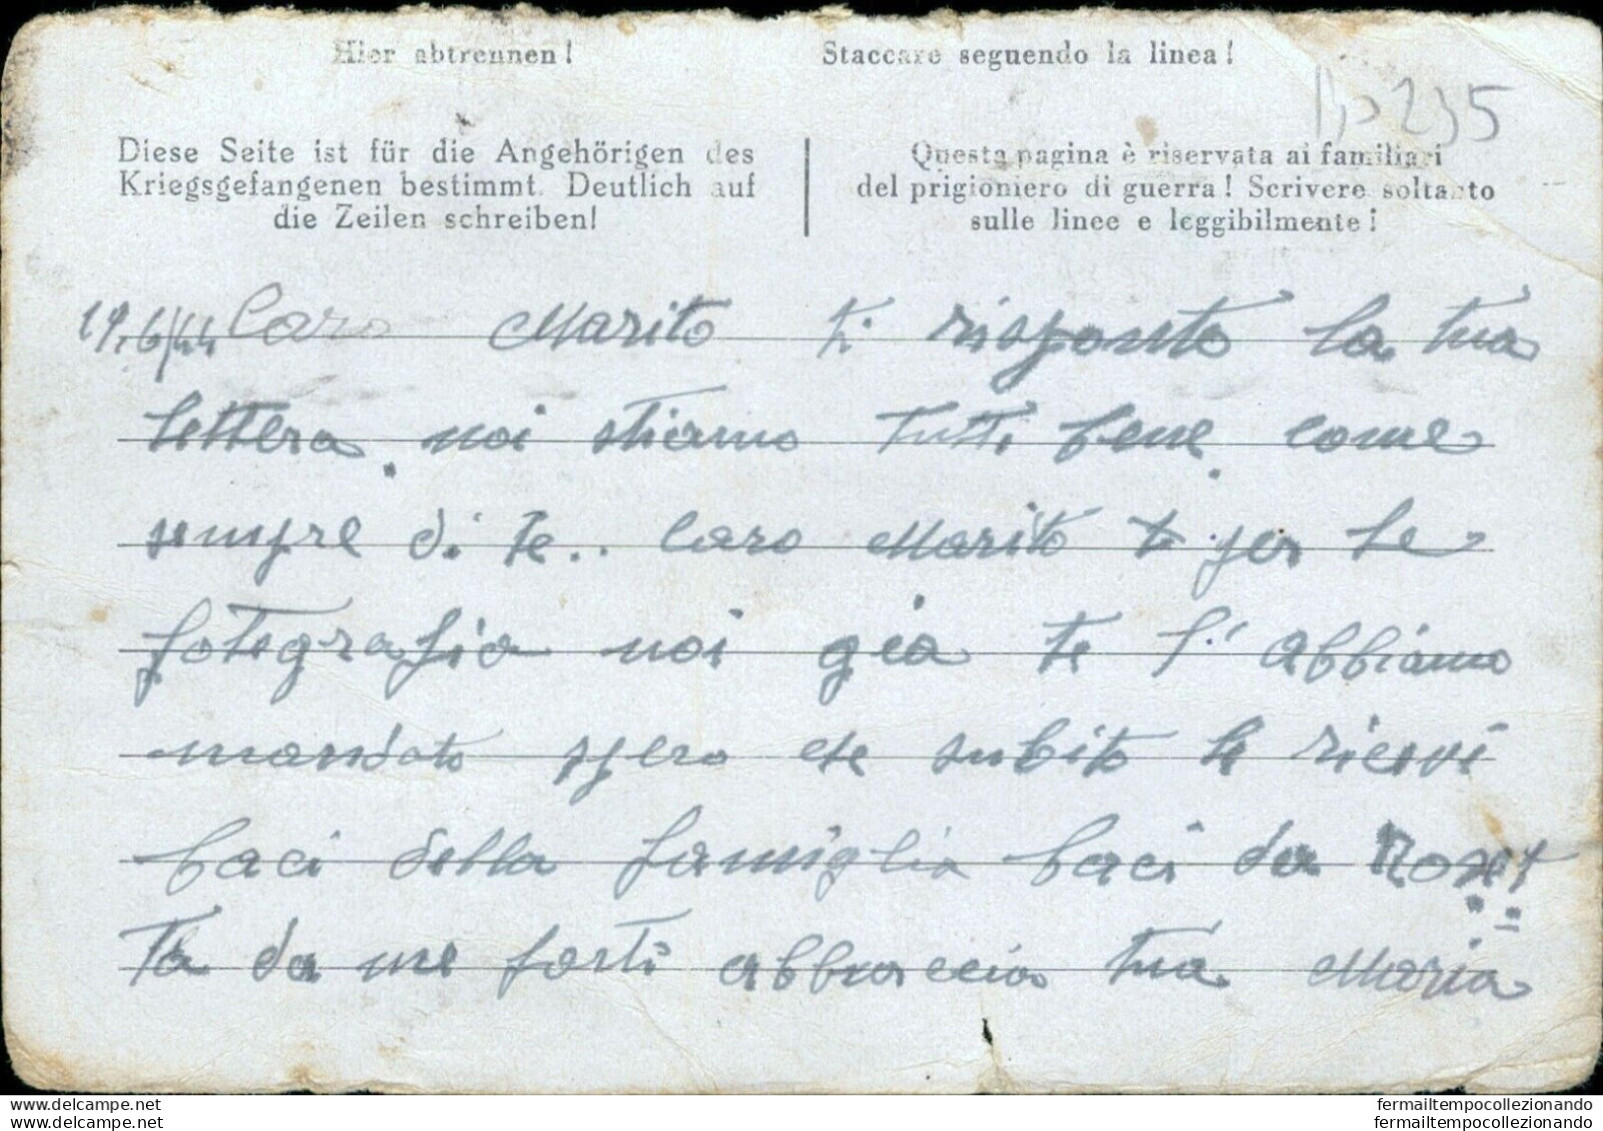 Hier abtrennen! Staccare seguendo la linea!
235
Diese Seite ist für die Angehörigen des
Kriegsgefangenen bestimmt. Deutlich auf
die Zeilen schreiben!
Questa pagina è riservata ai familiari
del prigioniero di guerra! Scrivere soltanto
sulle linee e leggibilmente!
19/6/44 Caro Marito ti risponto la tua
lettera. noi stiamo tutti bene. come
sempre di te.. Caro Marito per le
fotografia noi gia te l'abbiamo
mandato spero che subito le ricevi
baci della famiglia baci da
ta da me forti abbraccia tua Maria
fermailtempocollezionando.com
fermailtempocollezionando.com
fermailtempocollezionando
fermailtempocollezionando